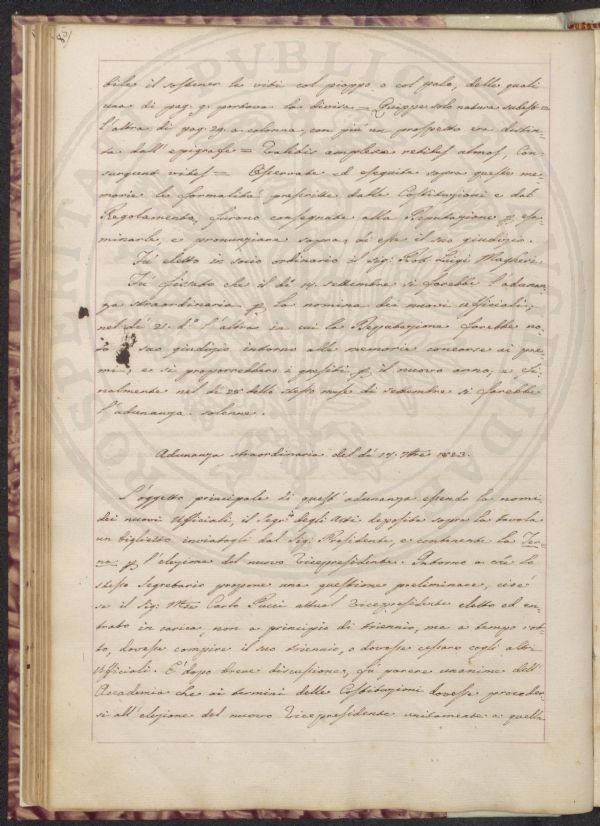 82
bile il sostener le viti col pioppo o col palo, delle quali
una di pag. 9. portava la divisa = Quippe solo natura subest =
l'altra di pag. 29. a colonna, con più un prospetto era distin-
ta dall'epigrafe = Validis amplexæ
surgunt vites = Osservate ed eseguite sopra queste me-
morie le formalità prescritte dalle Costituzioni e dal
Regolamento, furono consegnate alla Deputazione p. esa-
minarle, e pronunziare sopra di esse il suo giudizio.
Fù eletto in socio ordinario il Sig. Prof. Luigi Magheri
Fù fissato che il dì 14. settembre si farebbe l'adunan-
za straordinaria p. la nomina dei nuovi ufficiali;
nel dì 21. d.o l'altra in cui la Deputazione farebbe no-
to suo giudizio intorno alle memorie concorse ai pre-
mi, e si proporrebbero i quesiti p. il nuovo anno, e fi-
nalmente nel dì 28 dello stesso mese di settembre si farebbe
l'adunanza solenne.
Adunanza straordinaria del dì 14. 7bre 1823.
L'oggetto principale di quest'adunanza essendo la nomi.
dei nuovi Ufficiali, il Segr.o degli Atti depositò sopra la tavola
un biglietto inviatogli dal Sig. Presidente, e contenente la Ter-
na p. l'elezione del nuovo Vicepresidente. Intorno a che lo
stesso Segretario propone una questione preliminare, cioè
se il Sig. Carlo Pucci attual Vicepresidente eletto ed en-
trato in carica, non a principio di triennio, ma a tempo rot-
to, dovesse compire il suo triennio, o dovesse cessare cogli altri
Ufficiali. E dopo breve discussione, fu parere unanime dell'
Accademia che ai termini delle Costituzioni dovesse proceder-
si all'elezione del nuovo Vicepresidente unitamente a quella